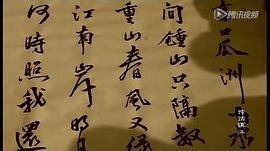 口瓜洲一水
間鍾山只隔數
重山春風又綠
江南岸明
何時照我還
腾讯视频